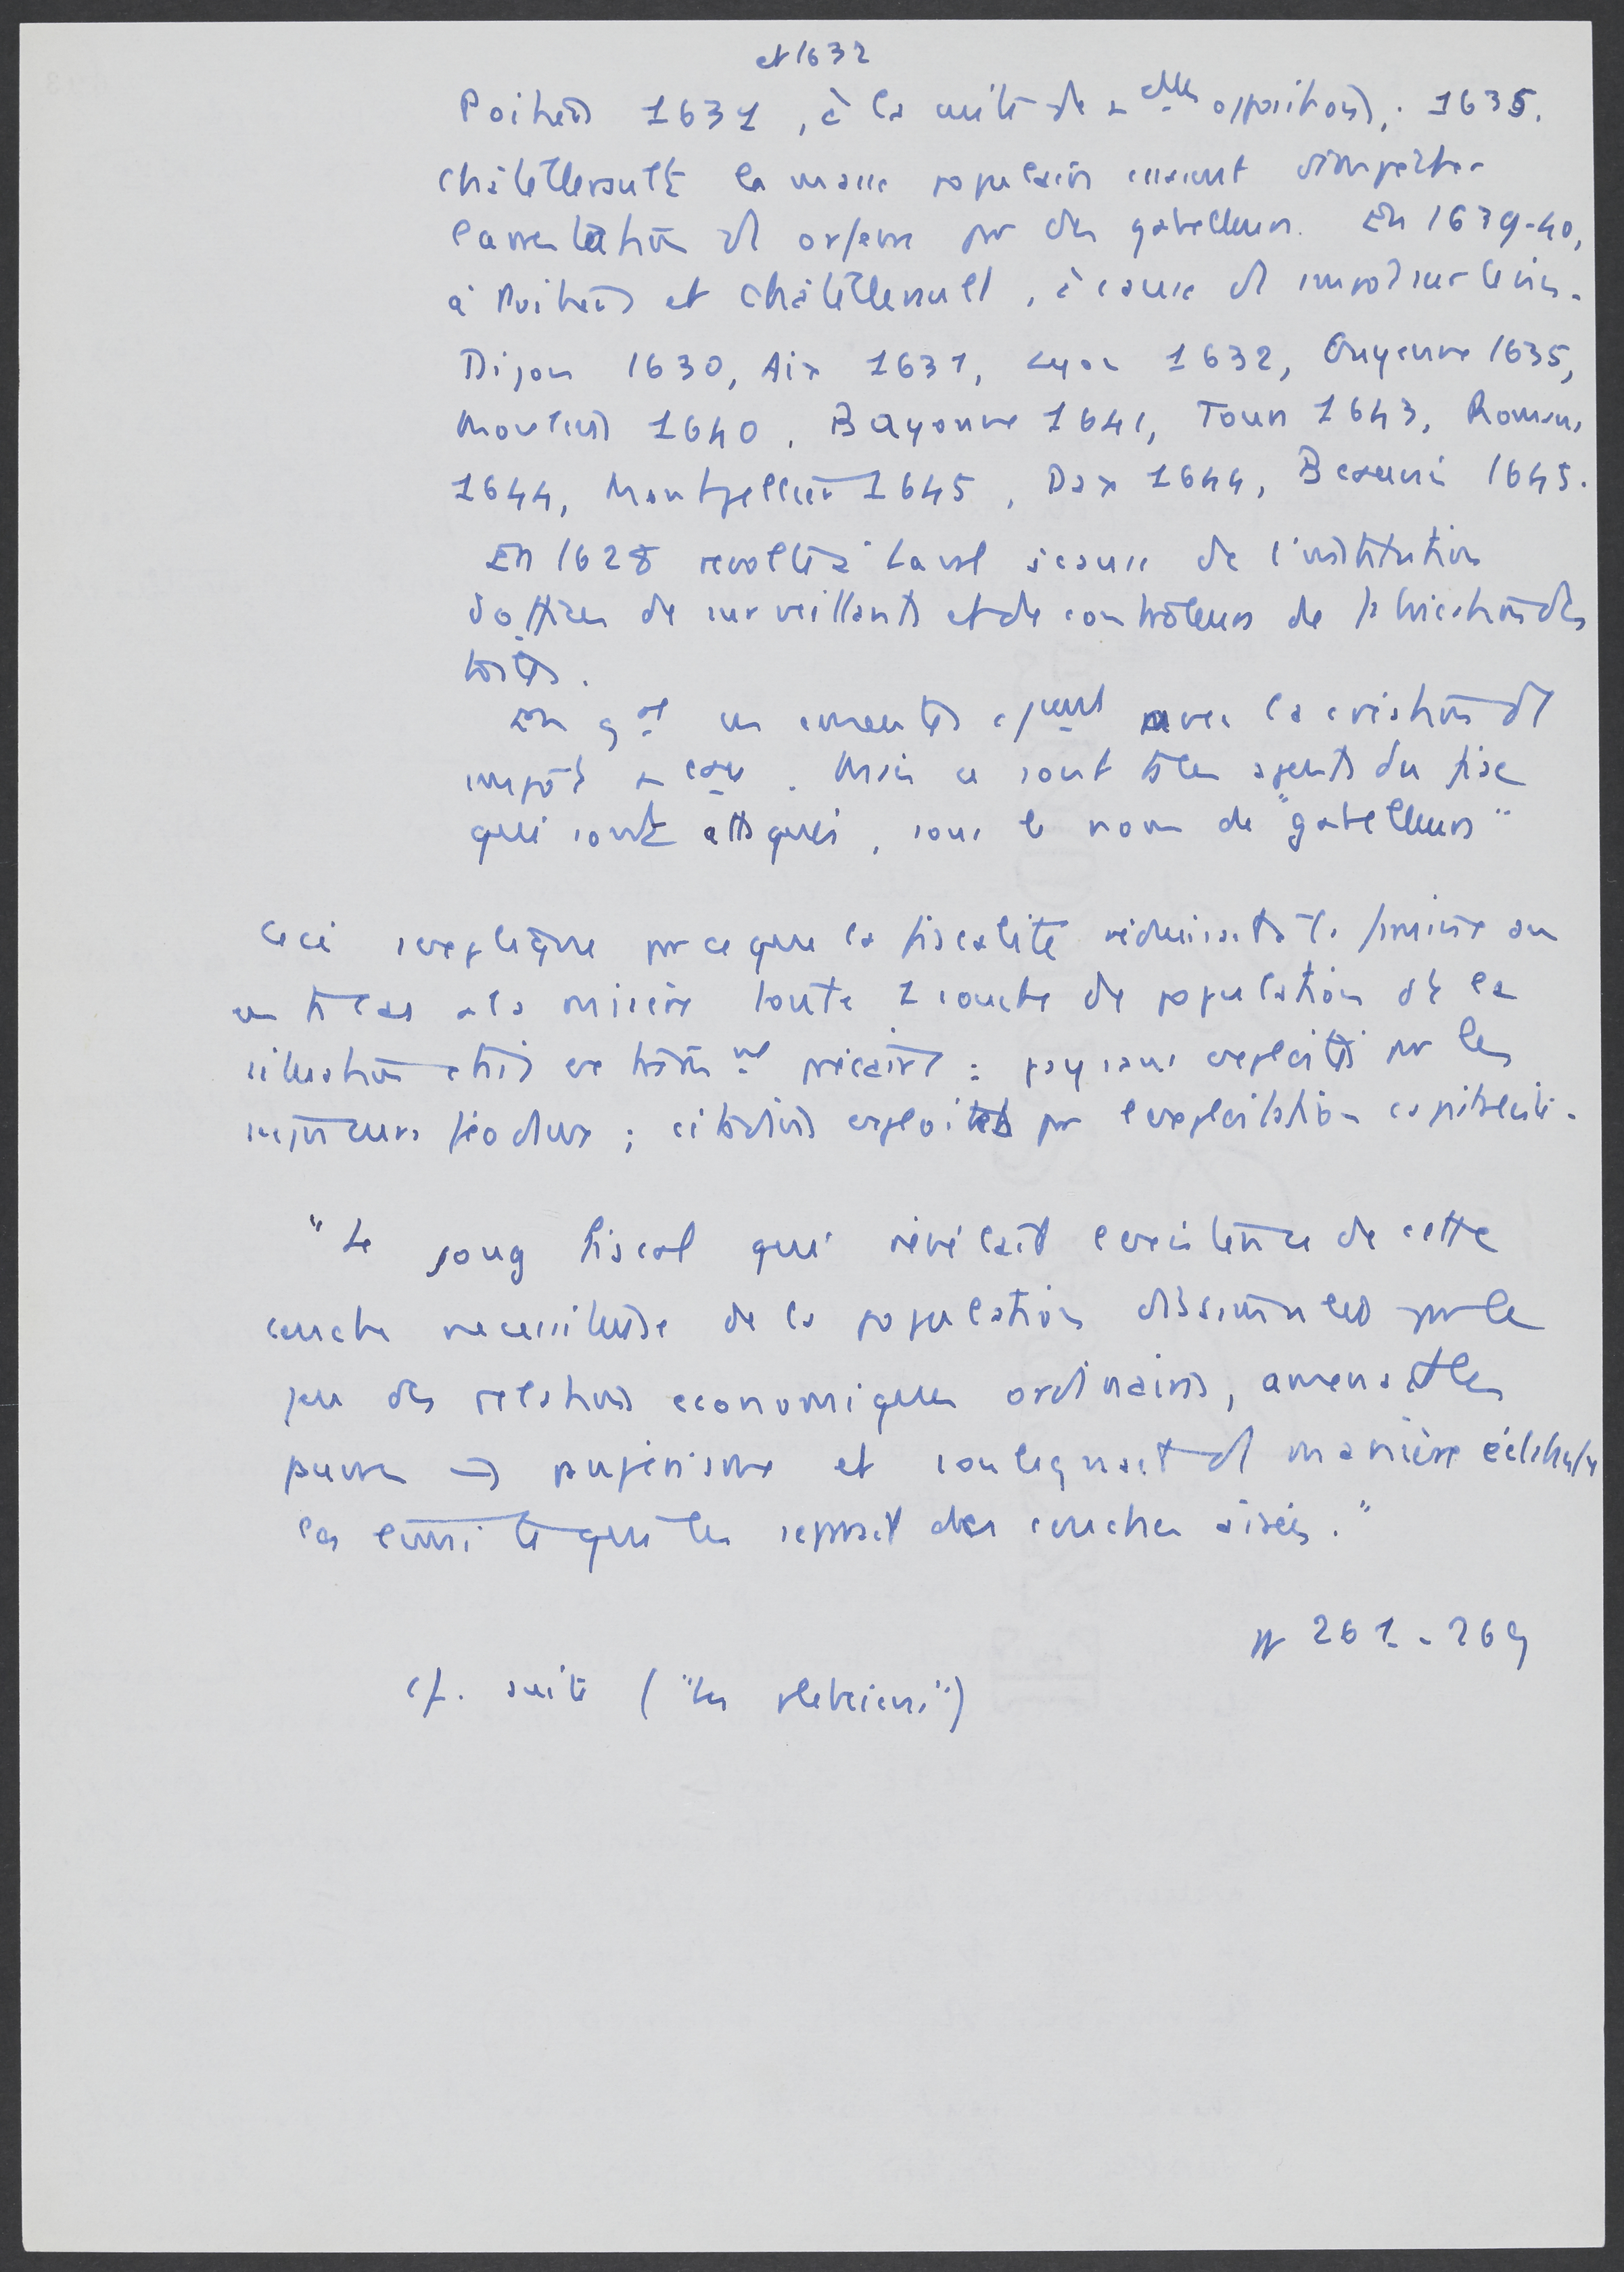 et 1632
Poitiers 1631, à la suite de nelles oppositions. 1635.
Châtellerault la masse populaire essaient d'empêcher
l'arrestation d'1 orfèvre par des gabelleurs. En 1639-40,
à Poitiers et Châtellerault, à cause d'1 impôt sur le vin.
Dijon 1630, Aix 1631, Lyon 1632, Guyenne 1635,
Moulins 1640, Bayonne 1641, Tours 1643, Romans
1644, Montpellier 1645, Dax 1644, Beauvais 1645.
En 1628 révolte à Laval à cause de l'institution
d'offices de surveillants et de contrôleurs de fabrication des
toiles.
En gal ces émeutes cpdent avec la création d'1
impôt nveau. Mais ce sont ts les agents du fisc
qui sont attaqués, sous le nom de "gabelleurs"
Ceci s'explique par ce que la fiscalité réduisait à la famine ou
en ts les cas à la misère toute 1 couche de population dt la
situation était extrêmt précaire : paysans exploités par les
seigneurs féodaux ; citadins exploités par l'exploitation capitaliste.
"Le joug fiscal qui révélait l'existence de cette
couche nécessiteuse de la population dissimulée par le
jeu des relations économiques ordinaires, amenait les
pauvres → paupérisme et soulignait d'1 manière éclatante
la sécurité que les reposait des couches aisées."
pp 261-269
cf. suite ("les plébéiens")